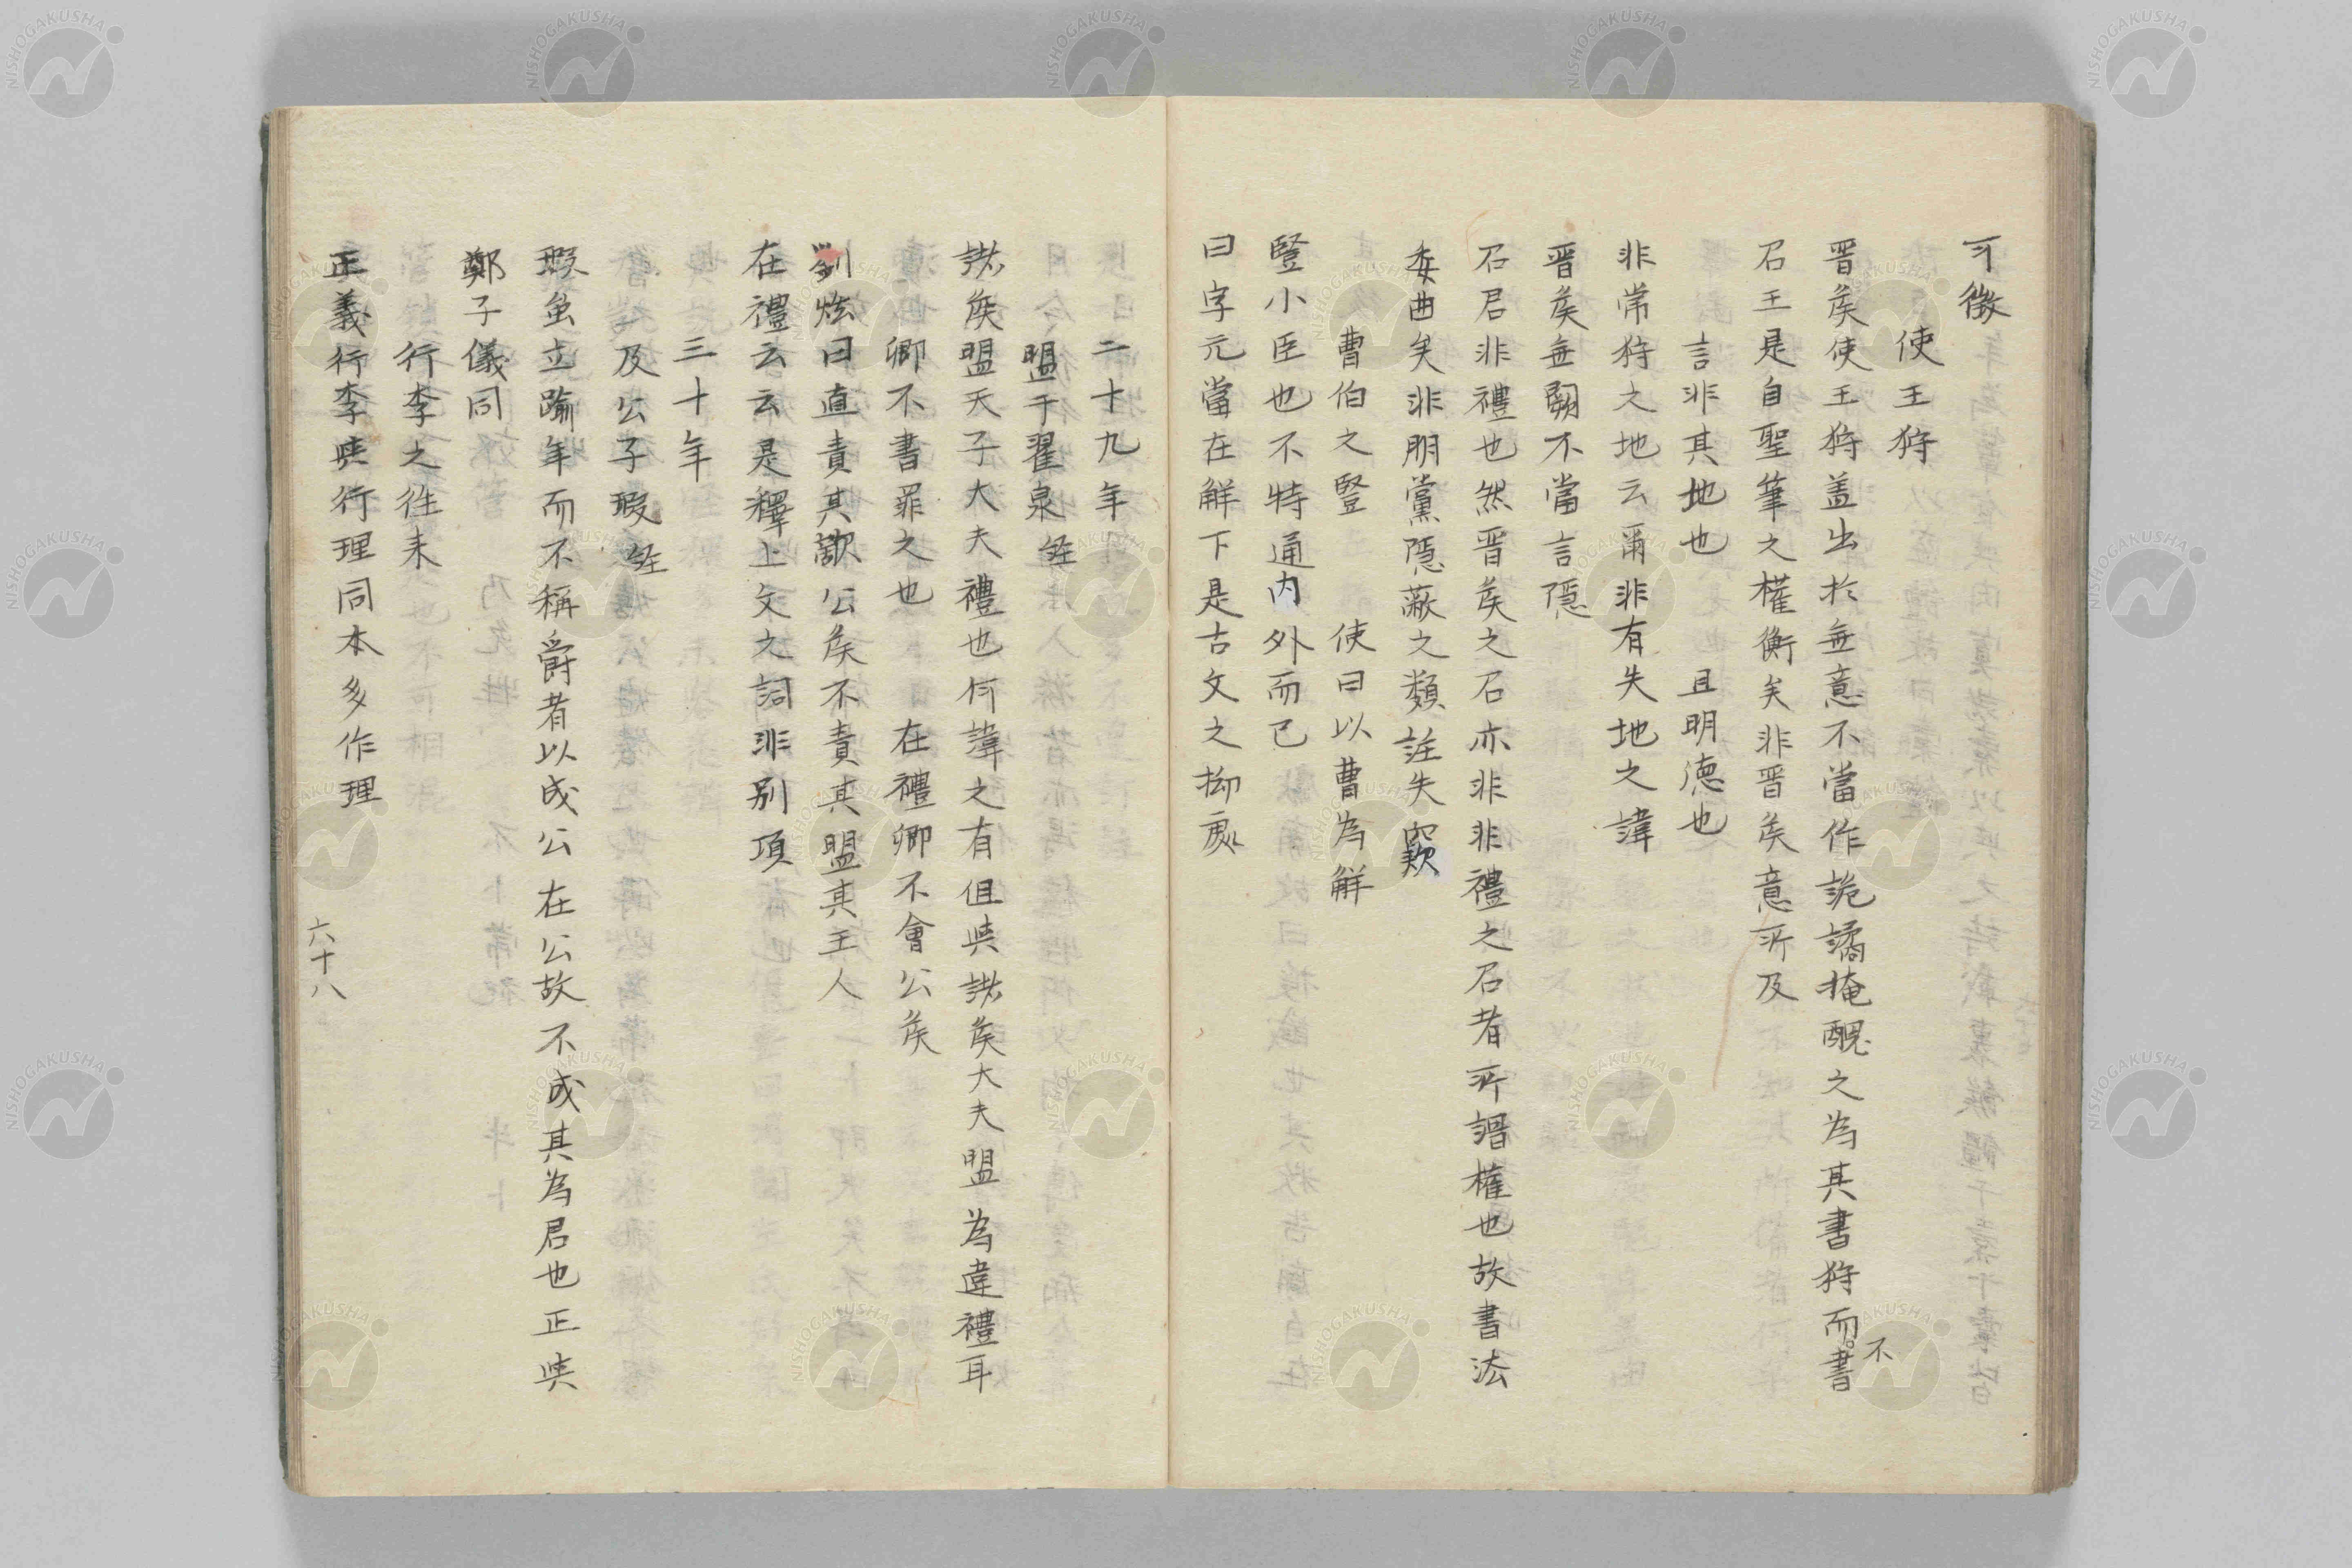 可徴
使王狩
晋矦使王狩盖出於無意不當作詭譎掩醜之為其書狩而不書
召王是自聖筆之權衡矣非晋矦意所及
言非其地也　且明徳也
非常狩之地云爾非有失地之諱
晋矦無闕不當言隠
召君非禮也然晋矦之召亦非非禮之召者所謂權也故書法
委曲矣非朋黨隠蔽之類註失窾
曹伯之豎　使曰以曹為解
豎小臣也不特通内外而已
曰字元當在解下是古文之抝處
二十九年
盟于翟泉経
諸矦盟天子大夫禮也何諱之有但與諸矦大夫盟為違禮耳
卿不書罪之也　在禮卿不會公矦
劉炫曰直責其敵公矦不責其盟其王人
在禮云云是釋上文之詞非别項
三十年
及公子瑕経
瑕虽立踰年而不稱爵者以成公在公故不成其為君也正與
鄭子儀同
行李之徃来
正義行李與行理同本多作理
六十八
NISHOGAKUSHA